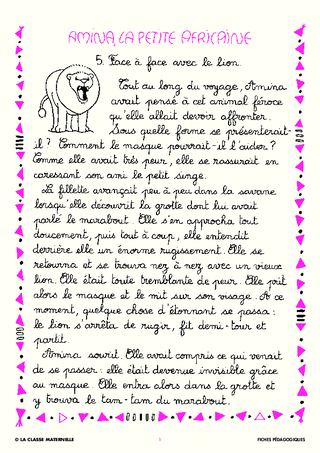 AMINA, LA PETITE AFRICAINE
5. Face à face avec le lion.
Tout au long du voyage, Amina
avait pensé à cet animal féroce
qu'elle allait devoir affronter.
Sous quelle forme se présenterait-
il ? Comment le masque pourrait-il l'aider ?
Comme elle avait très peur, elle se rassurait en
caressant son ami le petit singe.
La fillette avançait peu à peu dans la savane
lorsqu'elle découvrit la grotte dont lui avait
parlé le marabout. Elle s'en approcha tout
doucement, puis tout à coup, elle entendit
derrière elle un énorme rugissement. Elle se
retourna et se trouva nez à nez avec un vieux
lion. Elle était toute tremblante de peur. Elle prit
alors le masque et le mit sur son visage. A ce
moment, quelque chose d'étonnant se passa :
le lion s'arrêta de rugir, fit demi-tour et
partit.
Amina sourit. Elle avait compris ce qui venait
de se passer : elle était devenue invisible grâce
au masque. Elle entra alors dans la grotte et
y trouva le tam-tam du marabout.
© LA CLASSE MATERNELLE
1
FICHES PÉDAGOGIQUES